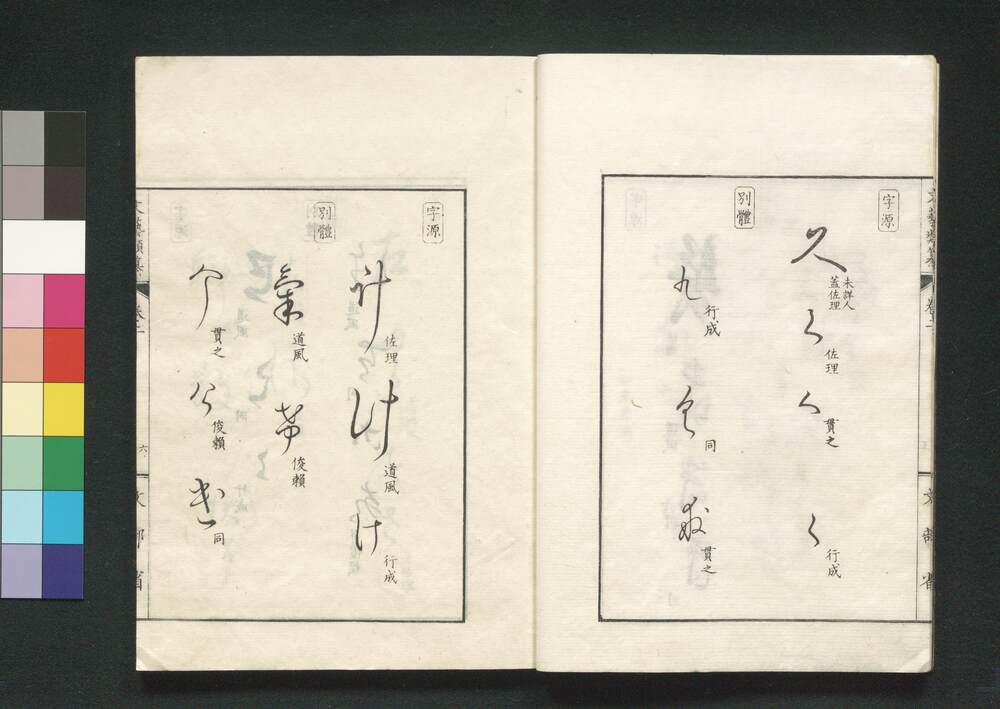 文藝類纂 卷二 文部省
字源
久 未詳人 蓋佐理
く 佐理
く 貫之
く 行成
別體
九 行成
同
貫之
字源
計 佐理
计 道風
け 行成
別體
氣 道風
希 俊頼
介 貫之
介 俊頼
同
文藝類纂 卷二 六 文部省